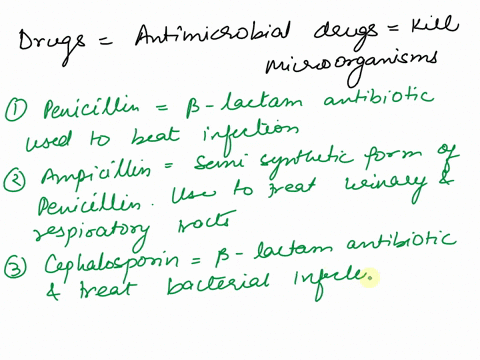 Drugs = Antimicrobial drugs = Kill
microorganisms
① Penicillin = β-lactam antibiotic
used to beat infection
② Ampicillin = Semi synthetic form of
Penicillin. Use to treat urinary &
respiratory tracts
③ Cephalosporin = β-lactam antibiotic
& treat bacterial Infecte.